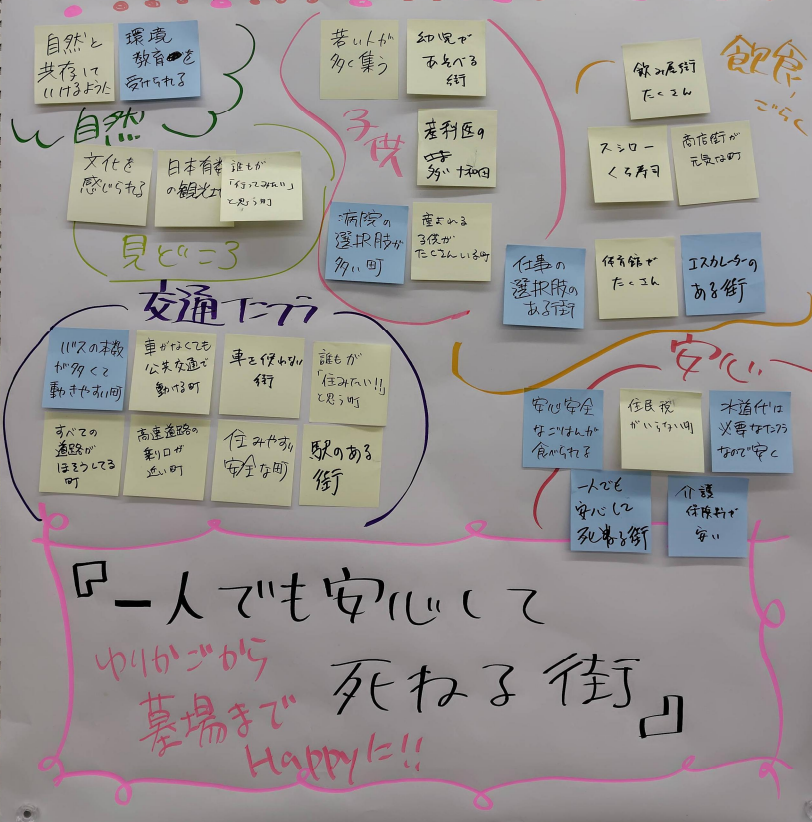 自然と
共存して
いけるように
環境
教育を
受けられる
自然
文化を
感じられる
日本有数
の観光地
誰もが
「行ってみたい」
と思う町
見どころ
若い人が
多く集う
幼児で
あそべる
街
子供
産科医の
多い十和田
病院の
選択肢が
多い町
産まれる
子供が
たくさんいる町
飲食、
ごらく
飲み屋街
たくさん
スシロー
くら寿司
商店街が
元気な町
仕事の
選択肢の
ある街
体育館が
たくさん
エスカレーターの
ある街
交通インフラ
バスの本数
が多くて
動きやすい町
車がなくても
公共交通で
動ける町
車を使わない
街
誰もが
「住みたい!!」
と思う町
すべての
道路が
ほそうしてる
町
高速道路の
乗り口が
近い町
住みやすい
安全な町
駅のある
街
安心
安心安全
なごはんが
食べられる
住民税
がいらない町
水道代は
必要なインフラ
なので安く
一人でも
安心して
死ねる街
介護
保険料が
安い
『一人でも安心して
死ねる街』
ゆりかごから
墓場まで
Happyに!!